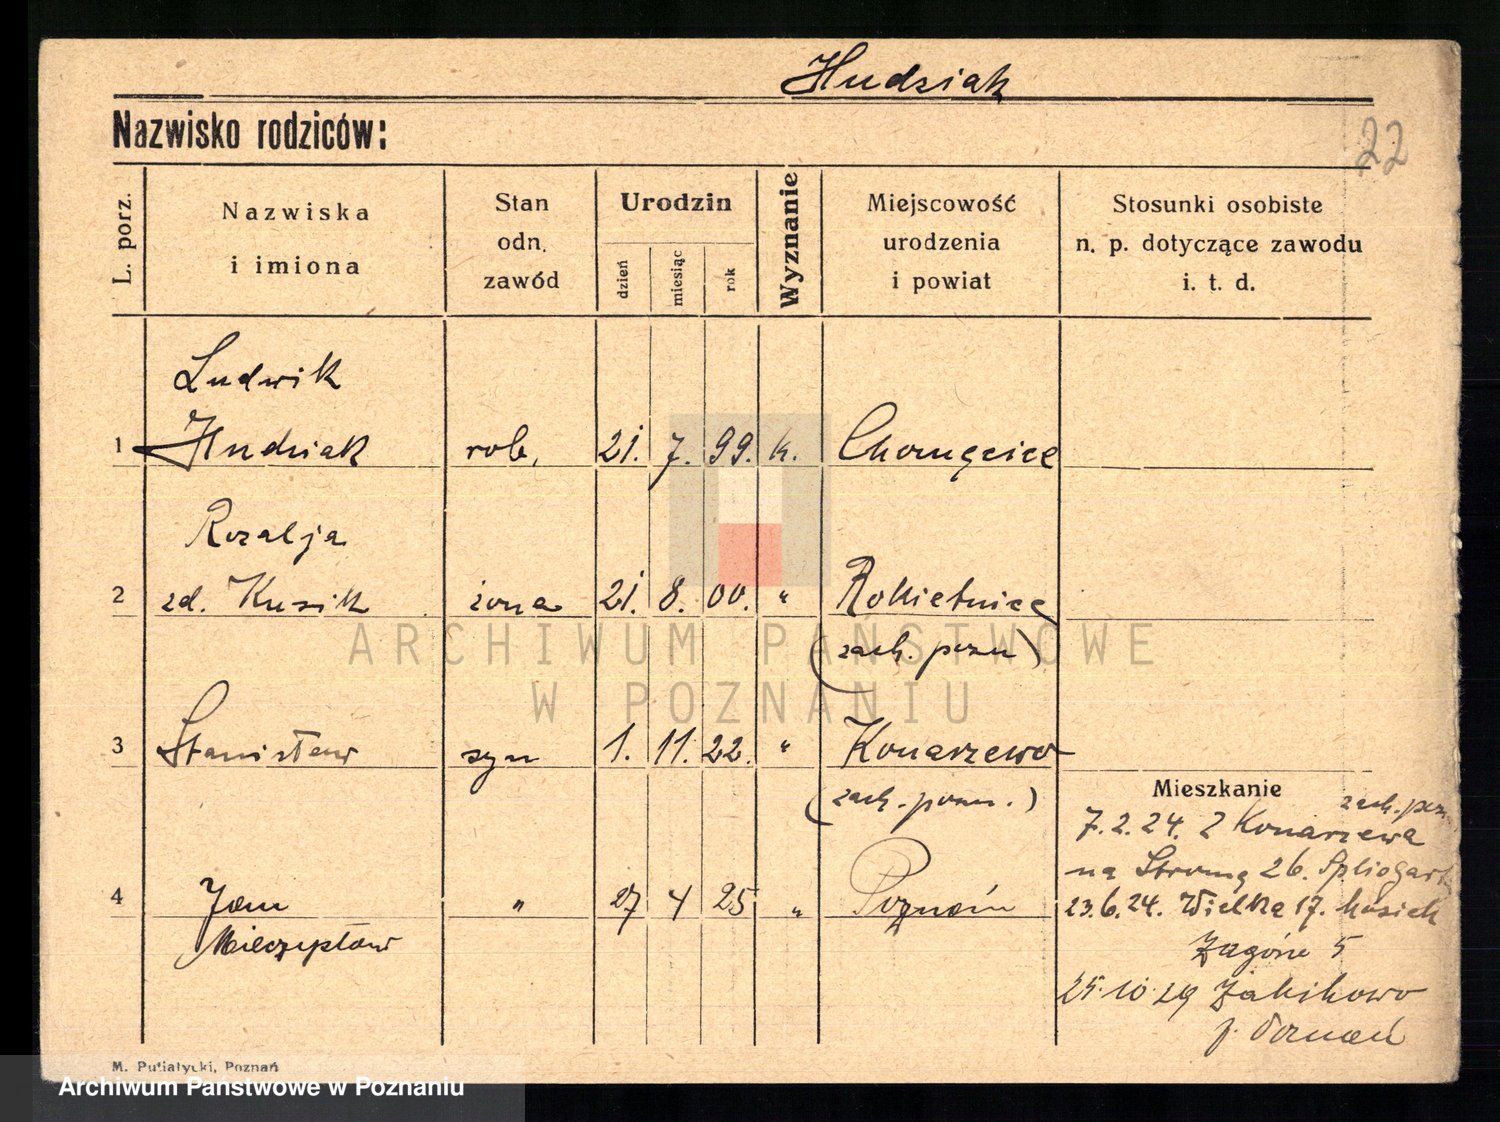 Hudziak
Nazwisko rodziców:
22
L. porz.
Nazwiska
i imiona
Stan
odn.
zawód
Urodzin
dzień
miesiąc
rok
Wyznanie
Miejscowość
urodzenia
i powiat
Stosunki osobiste
n. p. dotyczące zawodu
i. t. d.
Ludwik
1 Hudziak rob. 21. 7. 99. k. Chomęcice
Rozalja
2 zd. Kusik żona 21. 8. 00. " Rokietnice
(zach. pozn)
3 Stanisław syn 1. 11. 22. " Konarzewo
(zach. pozn.)
4 Jan " 27 4 25 " Poznań
Mieczysław
Mieszkanie
zach. pozn.
7.2.24. Z Konarzewa
na Stromą 26.
23.6.24. Wielka 17.
Zagórze 5
25.10.29 Żabikowo
p. Poznań
M. Putiatycki, Poznań
ARCHIWUM PAŃSTWOWE
W POZNANIU
Archiwum Państwowe w Poznaniu